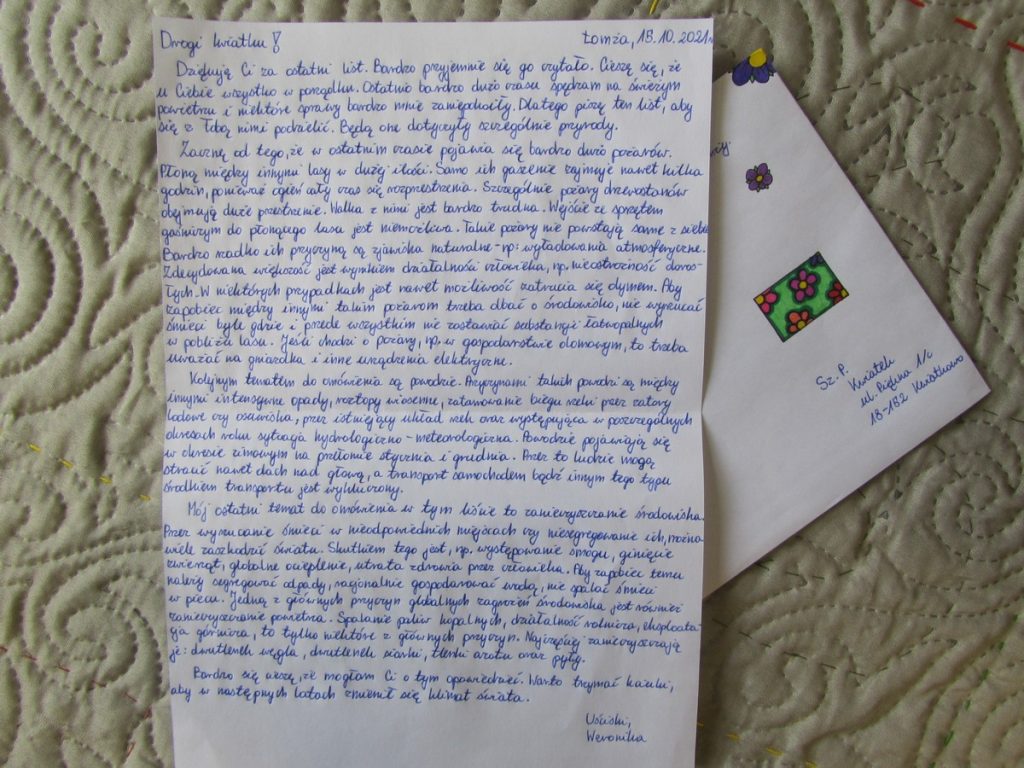 Drogi kwiatku!
Łomża, 15.10.2021r
Dziękuję Ci za ostatni list. Bardzo przyjemnie się go czytało. Cieszę się, że
u Ciebie wszystko w porządku. Ostatnio bardzo dużo czasu spędzam na świeżym
powietrzu i niektóre sprawy bardzo mnie zaniepokoiły. Dlatego piszę ten list, aby
się z Tobą nimi podzielić. Będą one dotyczyły szczególnie przyrody.
Zacznę od tego, że w ostatnim czasie pojawia się bardzo dużo pożarów.
Płoną między innymi lasy w dużej ilości. Samo ich gaszenie zajmuje nawet kilka
godzin, ponieważ ogień cały czas się rozprzestrzenia. Szczególnie pożary drzewostanów
obejmują duże przestrzenie. Walka z nimi jest bardzo trudna. Wejście ze sprzętem
gaśniczym do płonącego lasu jest niemożliwe. Takie pożary nie powstają same z siebie.
Bardzo rzadko ich przyczyną są zjawiska naturalne - np: wyładowania atmosferyczne.
Zdecydowana większość jest wynikiem działalności człowieka, np. nieostrożność doros-
łych. W niektórych przypadkach jest nawet możliwość zatrucia się dymem. Aby
zapobiec między innymi takim pożarom trzeba dbać o środowisko, nie wyrzucać
śmieci byle gdzie i przede wszystkim nie zostawiać substancji łatwopalnych
w pobliżu lasu. Jeśli chodzi o pożary, np. w gospodarstwie domowym, to trzeba
uważać na gniazdka i inne urządzenia elektryczne.
Kolejnym tematem do omówienia są powodzie. Przyczynami takich powodzi są między
innymi intensywne opady, roztopy wiosenne, zatamowanie biegu rzeki przez zatory
lodowe czy osuwiska, przez istniejący układ rzek oraz występująca w poszczególnych
okresach roku sytuacja hydrologiczno - meteorologiczna. Powodzie pojawiają się
w okresie zimowym na przełomie stycznia i grudnia. Przez to ludzie mogą
stracić nawet dach nad głową, a transport samochodem bądź innym tego typu
środkiem transportu jest wykluczony.
Mój ostatni temat do omówienia w tym liście to zanieczyszczanie środowiska.
Przez wyrzucanie śmieci w nieodpowiednich miejscach czy niesegregowanie ich, można
wiele zaszkodzić światu. Skutkiem tego jest, np. występowanie smogu, ginięcie
zwierząt, globalne ocieplenie, utrata zdrowia przez człowieka. Aby zapobiec temu
należy segregować odpady, racjonalnie gospodarować wodą, nie spalać śmieci
w piecu. Jedną z głównych przyczyn globalnych zagrożeń środowiska jest również
zanieczyszczanie powietrza. Spalanie paliw kopalnych, działalność rolnicza, eksploata-
cja górnicza, to tylko niektóre z głównych przyczyn. Najczęściej zanieczyszczają
je: dwutlenek węgla, dwutlenek siarki, tlenki azotu oraz pyły.
Bardzo się cieszę, że mogłam Ci o tym opowiedzieć. Warto trzymać kciuki,
aby w następnych latach zmienił się klimat świata.
Uściski,
Weronika
Sz. P.
Kwiatek
ul. Piękna 1/c
18-182 Kwiatkowo